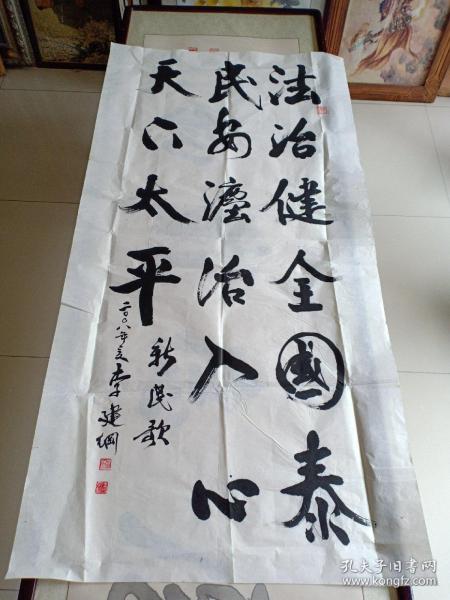 法治健全國泰
民安 治入心
天下太平
新民歌
二〇〇八年 李建鋼
孔夫子旧书网
www.kongfz.com